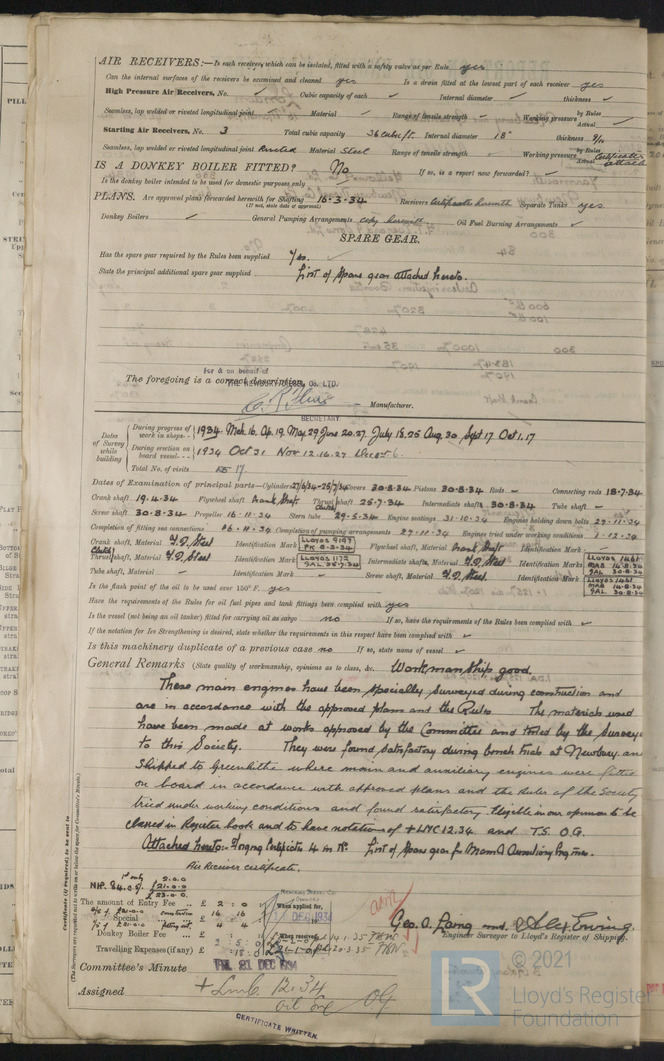 AIR RECEIVERS:—Is each receiver, which can be isolated, fitted with a safety valve as per Rule yes
Can the internal surfaces of the receivers be examined and cleaned yes Is a drain fitted at the lowest part of each receiver yes
High Pressure Air Receivers, No. ✓ Cubic capacity of each ✓ Internal diameter ✓ thickness ✓
Seamless, lap welded or riveted longitudinal joint ✓ Material ✓ Range of tensile strength ✓ Working pressure by Rules Actual ✓
Starting Air Receivers, No. 3 Total cubic capacity 36 cubic ft. Internal diameter 18" thickness 9/16
Seamless, lap welded or riveted longitudinal joint Riveted Material Steel Range of tensile strength Working pressure by Rules Actual Certificates attach
IS A DONKEY BOILER FITTED? No If so, is a report now forwarded? ✓
Is the donkey boiler intended to be used for domestic purposes only ✓
PLANS. Are approved plans forwarded herewith for Shafting 16.3.34 Receivers Certificates herewith Separate Tanks yes
(If not, state date of approval)
Donkey Boilers ✓ General Pumping Arrangements copy herewith Oil Fuel Burning Arrangements ✓
SPARE GEAR.
Has the spare gear required by the Rules been supplied Yes. ✓
State the principal additional spare gear supplied List of spare gear attached hereto.
For & on behalf of
The foregoing is a correct description,
CO. LTD.
SECRETARY Manufacturer.
Dates of Survey while building
During progress of work in shops - - 1934 Mch. 16. Ap. 19. May 29 June 20.27. July 18.25 Aug. 30. Sept 17. Oct 1.17
During erection on board vessel - - - 1934 Oct 31 Nov 12.16.27 Dec 6.
Total No. of visits 17
Dates of Examination of principal parts—Cylinders 27/6/34-25/7/34 Covers 30.8.34 Pistons 30.8.34 Rods - Connecting rods 18.7.34
Crank shaft 19.4.34 Flywheel shaft Crank Shaft Thrust shaft 25.7.34 Intermediate shafts 30.8.34 Tube shaft -
Screw shaft 30.8.34 Propeller 16.11.34 Stern tube 29.5.34 Engine seatings 31.10.34 Engine holding down bolts 27.11.34
Completion of fitting sea connections 16.11.34 Completion of pumping arrangements 27.11.34 Engines tried under working conditions 1.12.34
Crank shaft, Material I.D. Steel Identification Mark LLOYDS 9197 PK 8-3-34 Flywheel shaft, Material Crank Shaft Identification Mark
(Clutch) Thrust shaft, Material I.D. Steel Identification Mark LLOYDS 1172 GAL 25.7.34 Intermediate shafts, Material I.D. Steel Identification Marks LLOYDS 1461 MAB 14.8.34 GAL 30.8.34
Tube shaft, Material Identification Mark Screw shaft, Material I.D. Steel. Identification Mark LLOYDS 1461 MAB 14.8.34 GAL 30.8.34
Is the flash point of the oil to be used over 150° F. yes
Have the requirements of the Rules for oil fuel pipes and tank fittings been complied with yes
Is the vessel (not being an oil tanker) fitted for carrying oil as cargo no If so, have the requirements of the Rules been complied with ✓
If the notation for Ice Strengthening is desired, state whether the requirements in this respect have been complied with ✓
Is this machinery duplicate of a previous case no If so, state name of vessel ✓
General Remarks (State quality of workmanship, opinions as to class, &c. Workmanship good.
These main engines have been specially surveyed during construction and
are in accordance with the approved plans and the Rules. The materials used
have been made at works approved by the Committee and tested by the Surveyors
to this Society. They were found satisfactory during bench trials at Newbury and
shipped to Greenhithe where main and auxiliary engines were fitted
on board in accordance with approved plans and the Rules of the Society
tried under working conditions and found satisfactory. Eligible in our opinion to be
classed in Register book and to have notations of +LMC 12.34 and T.S. O.G.
Attached hereto:- Forging Certificate 4 in No. List of spare gear for Main & Auxiliary Engines.
Air Receiver certificate.
The amount of Entry Fee £ 2 : 0 :
Special 16 16
4 4
Donkey Boiler Fee
Travelling Expenses (if any) £
When applied for,
DEC 1934
When received,
Geo. A. Laing and
Engineer Surveyor to Lloyd's Register of Shipping.
Committee's Minute FRI. 21 DEC 1934
Assigned + LMC 12.34
Oil Eng OG
CERTIFICATE WRITTEN.
Certificate (if required) to be sent to
(The Surveyors are requested not to write on or below the space for Committee's Minute.)
© 2021
LR
Lloyd's Register
Foundation